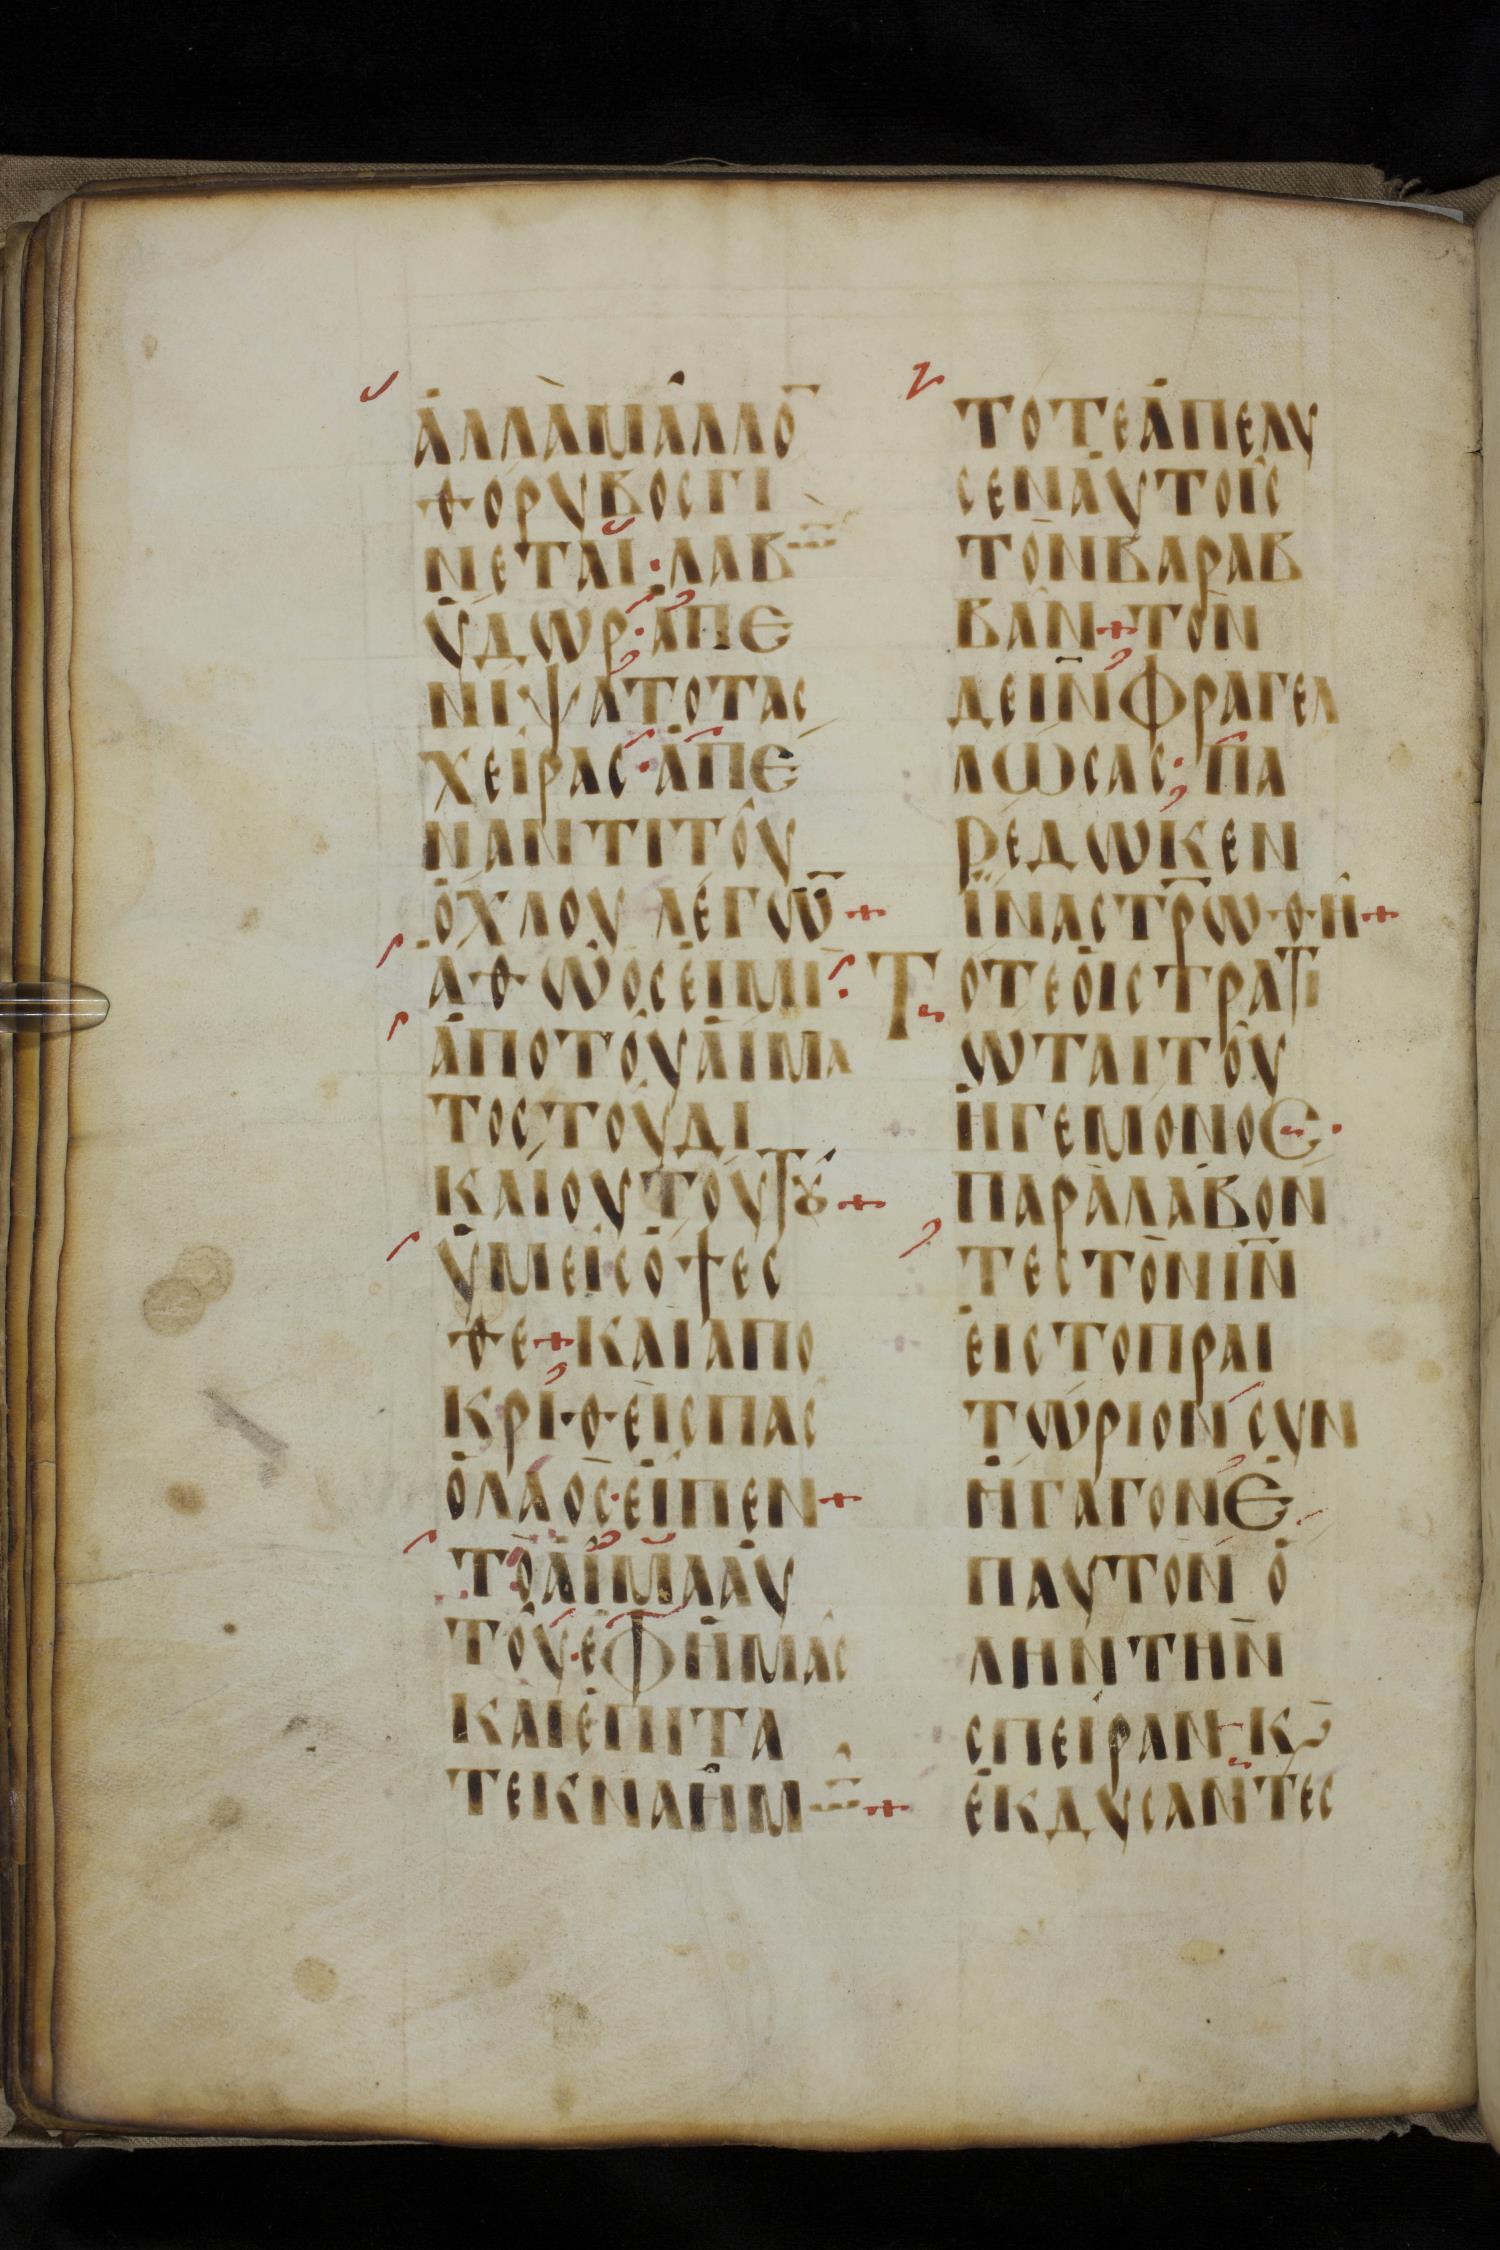 ἀλλὰ μᾶλλο̅
θόρυβος γί
νεται· λαβὼ̅
ὕδωρ· ἀπε
νίψατο τὰς
χεῖρας· ἀπέ
ναντι τοῦ
ὄχλου λέγω̅+
ἀθῶος εἰμι·
ἀπο τοῦ αἵμα
τος τοῦ δι
καίου τούτȣ+
ὑμεῖς ὄψεσ
θε+ καὶ ἀπο
κριθεὶς πᾶς
ὁ λαὸς εἶπεν+
τὸ αἷμα αὐ
τοῦ· ἐφ ἡμᾶς
καὶ ἐπὶ τὰ
τέκνα ἡμῶ̅+
τότε ἀπέλυ
σεν αὐτοῖς
τὸν βαραβ
βᾶν+ τὸν
δε ι̅ν̅ φραγελ
λώσας· πα
ρέδωκεν
ἵνα σ̅τ̅ρ̅ωθῆ+
Τότε οἱ στρατι
ῶται τοῦ
ἡγεμόνος·
παραλαβόν
τες τὸν ι̅ν̅
εἰς τὸ πραι
τώριον συν
ήγαγον ἐ
π αὐτὸν ὅ
λην τὴν
σπεῖραν· κ̅
ἐκδύσαντες